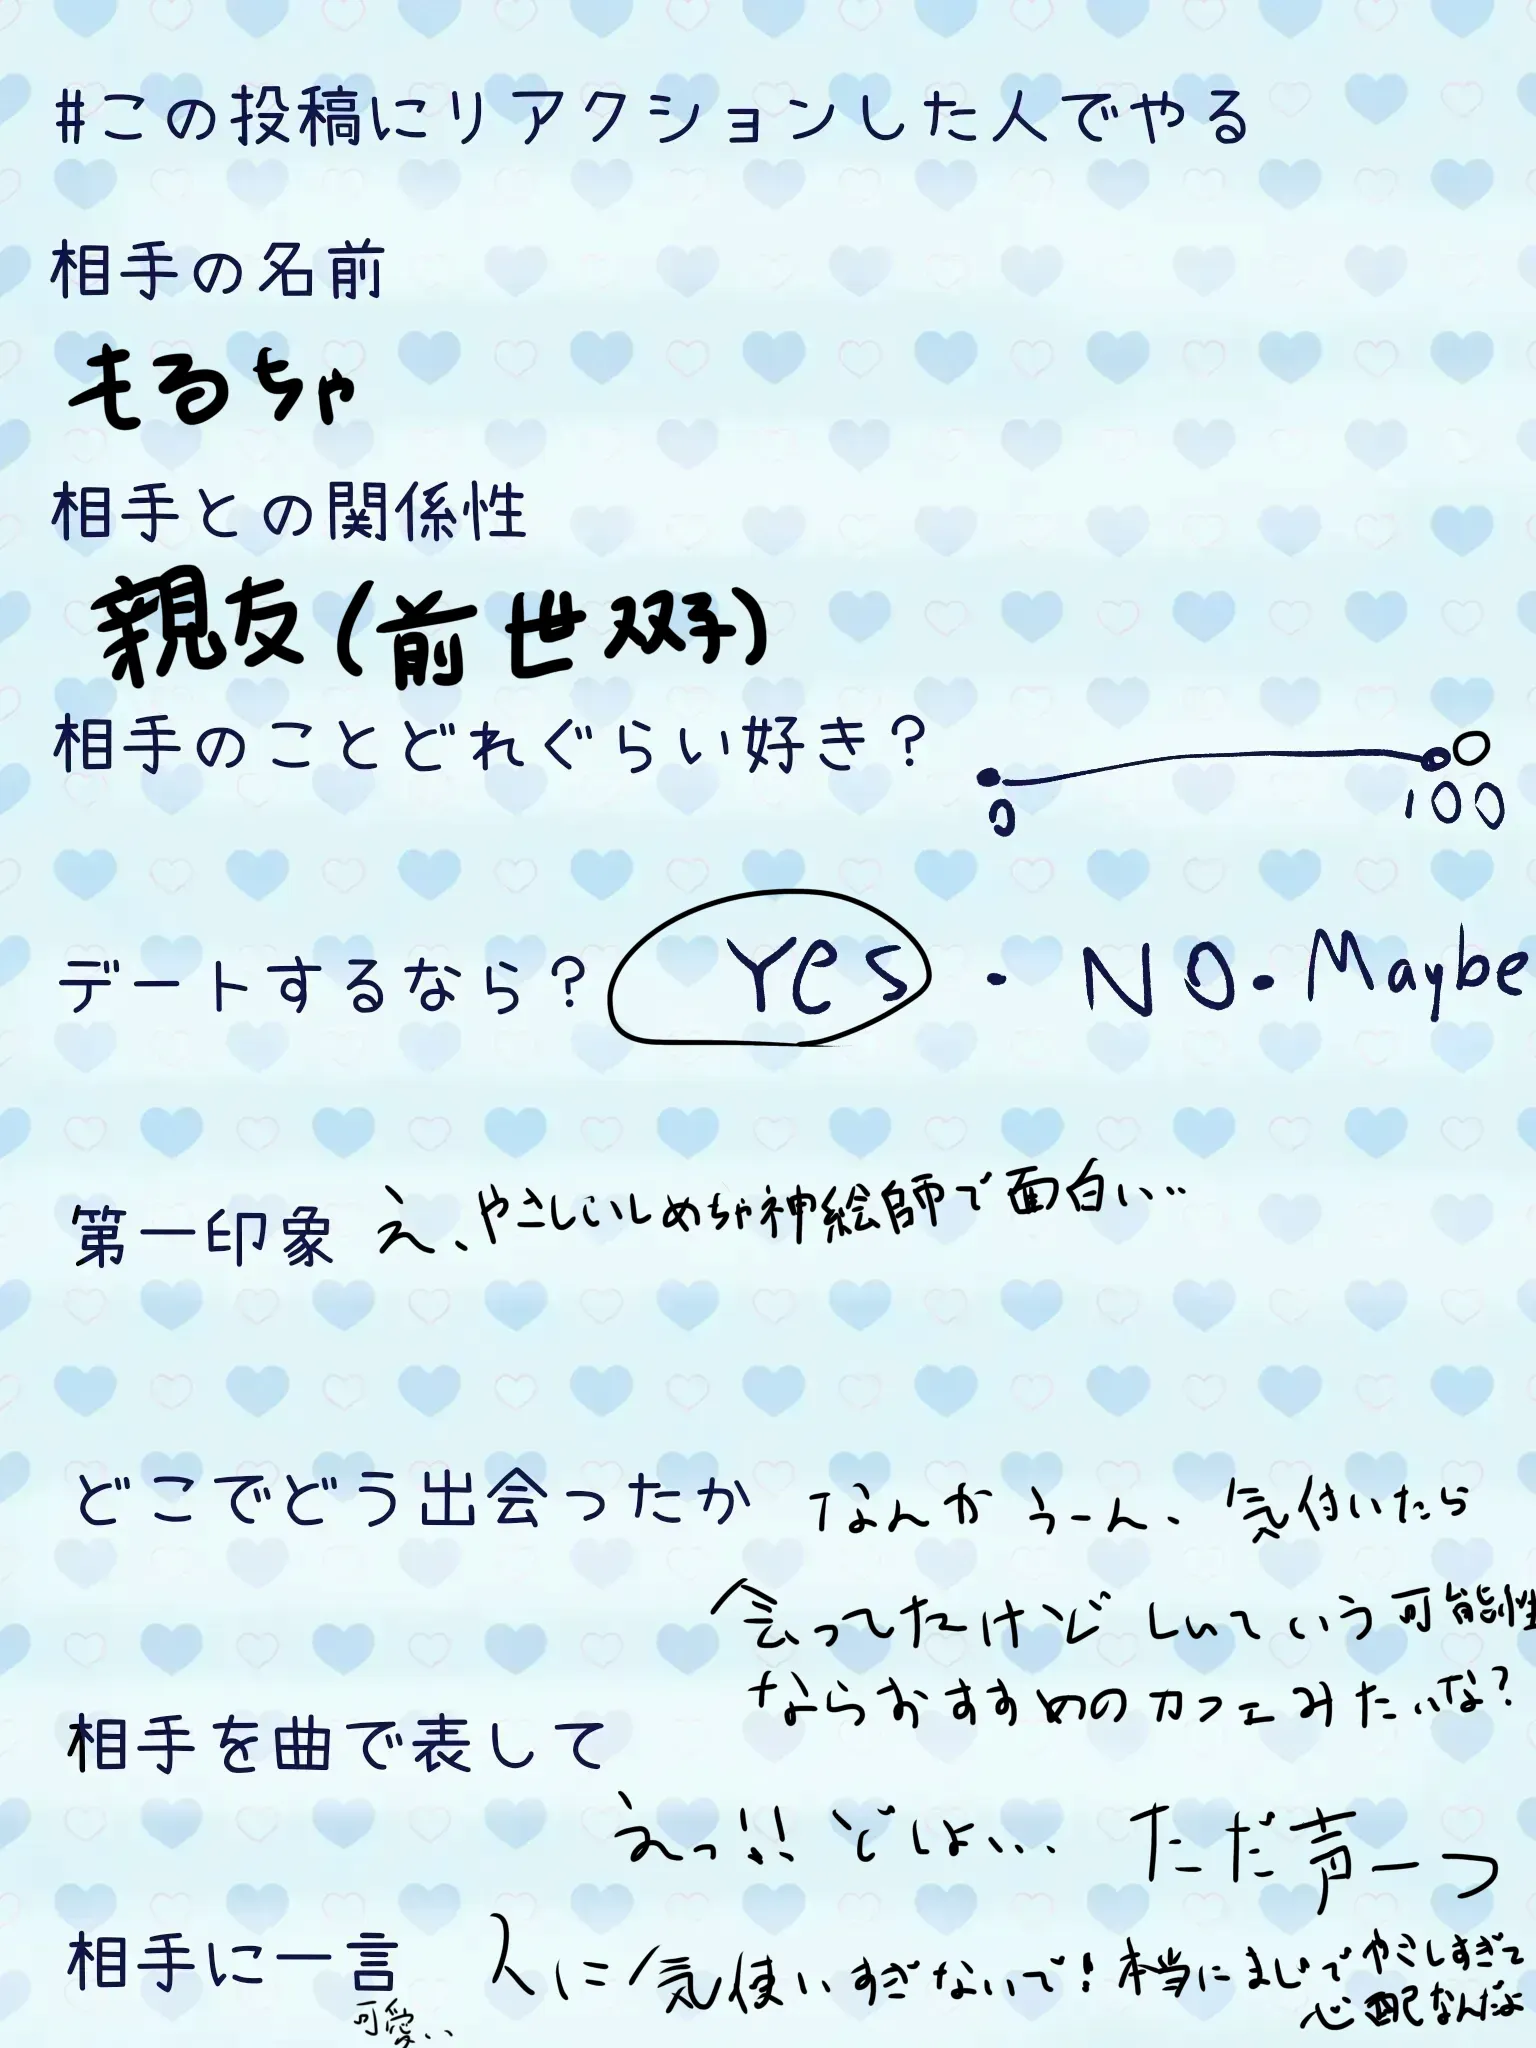 #この投稿にリアクションした人でやる
相手の名前
もるちゃ
相手との関係性
親友(前世双子)
相手のことどれぐらい好き?
0 100
デートするなら? Yes・NO・Maybe
第一印象 え、やさしいしめちゃ神絵師で面白い…
どこでどう出会ったか なんかうーん、気付いたら
会ってたけど しいていう可能性
ならおすすめのカフェみたいな?
相手を曲で表して
えっ!! どしよ… ただ声一つ
相手に一言 人に気使いすぎないで!本当にまじでやさしすぎて
心配なんだよ
可愛い